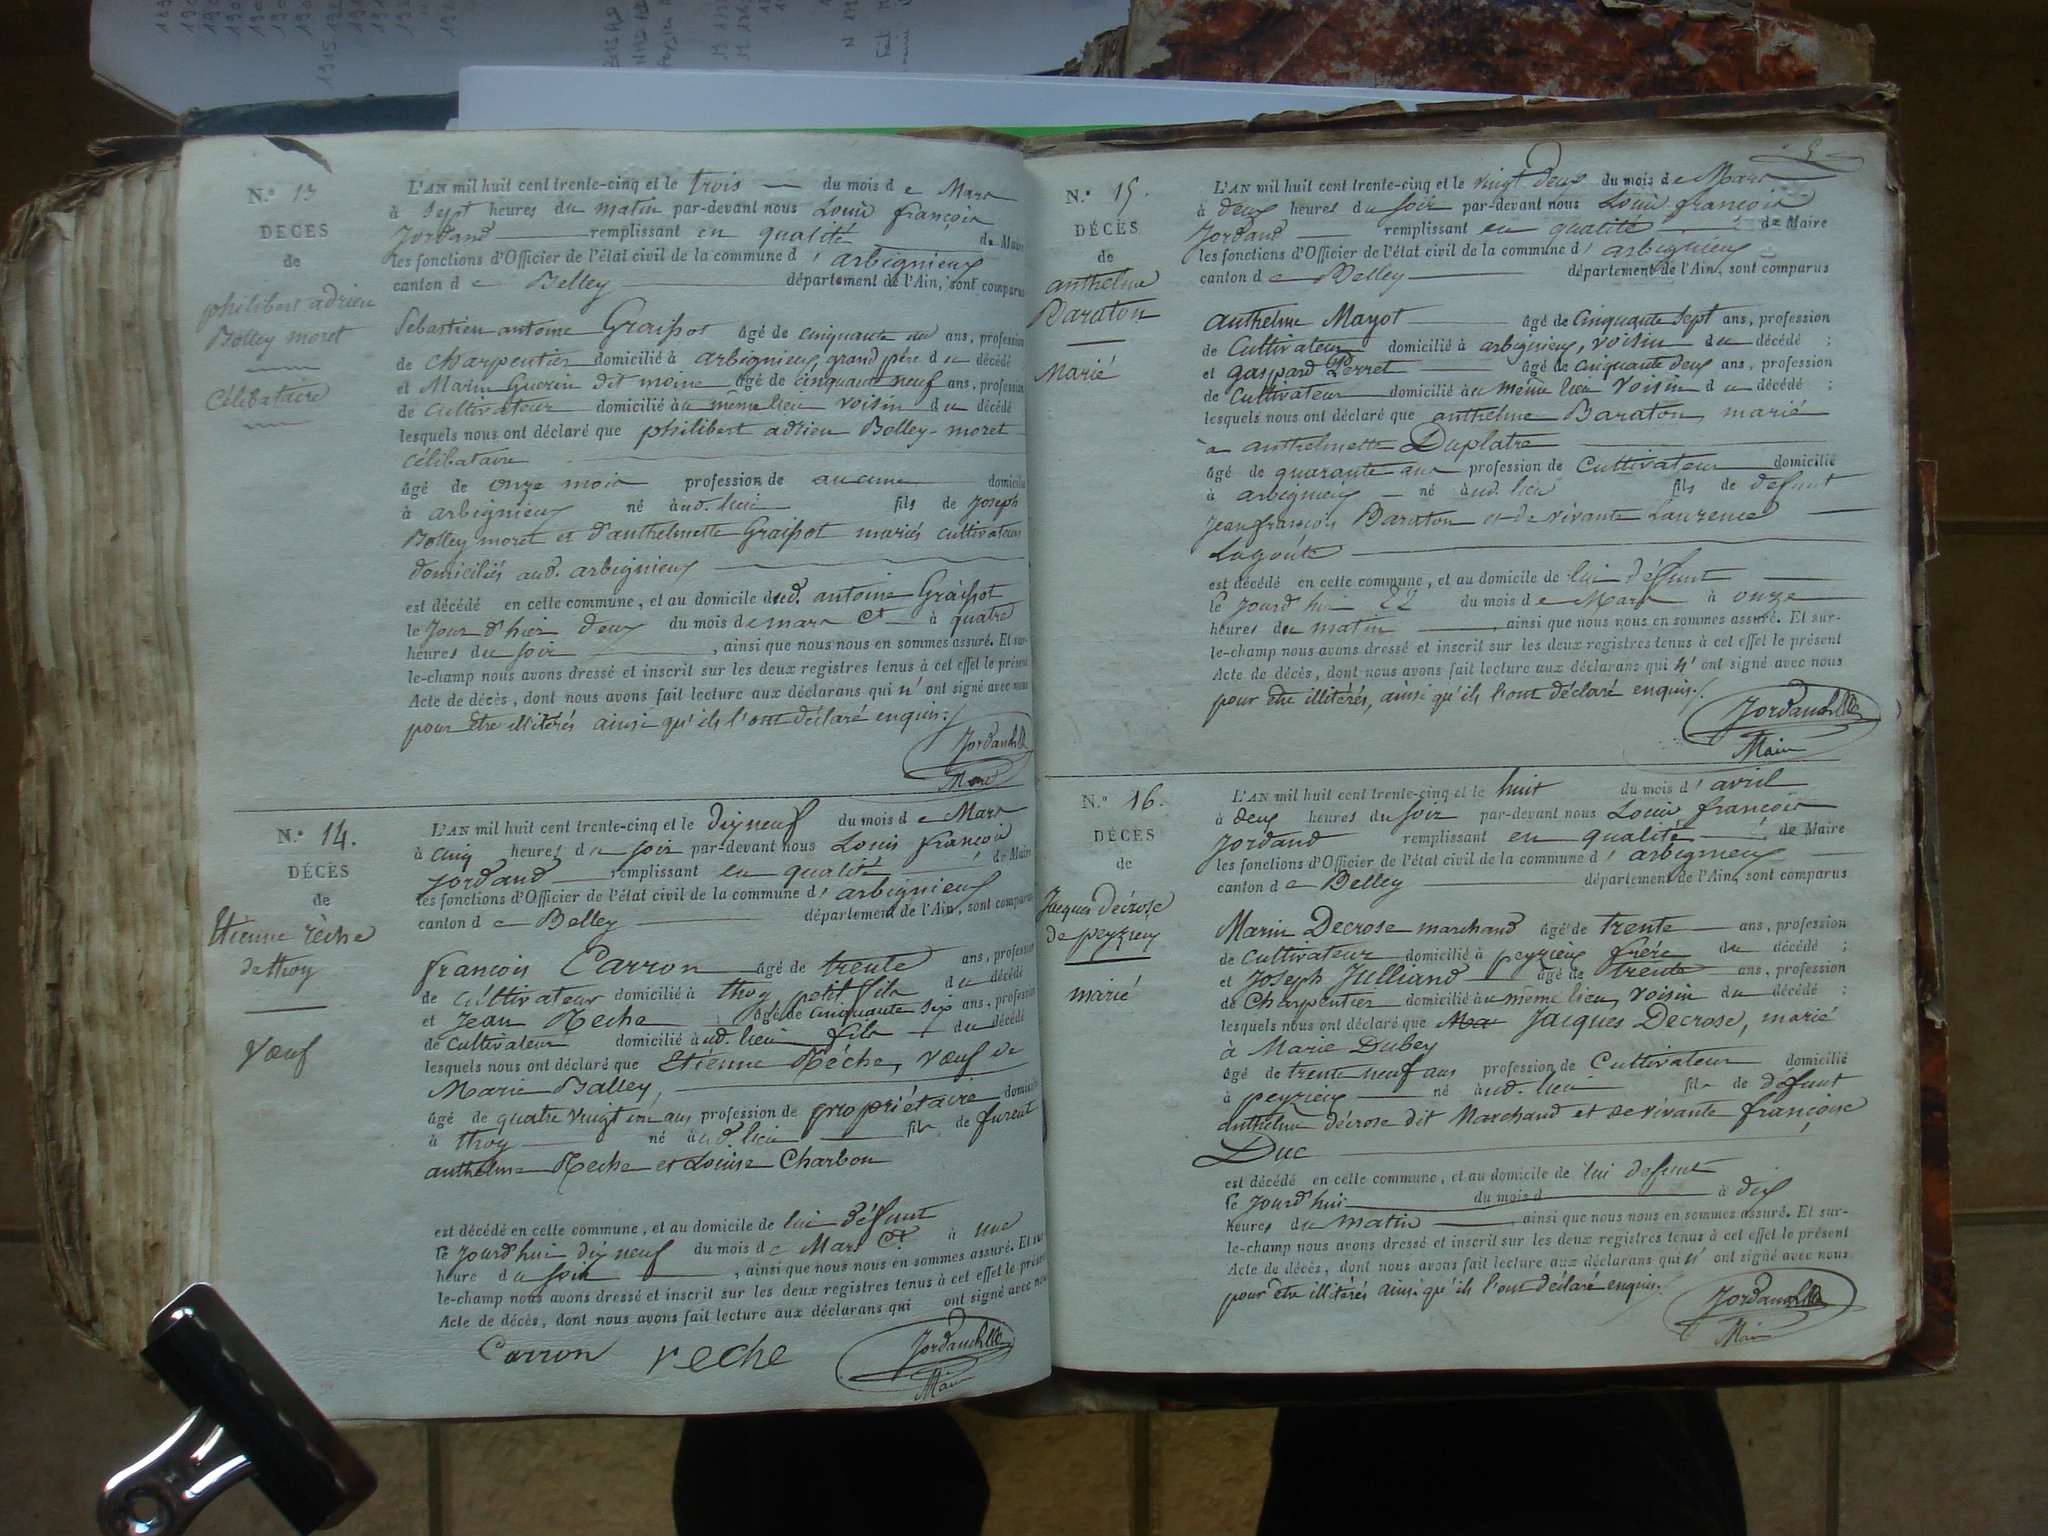 N.º 13
DÉCÈS
de
philibert adrien
Bolley moret
Célibataire
L'AN mil huit cent trente-cinq et le trois du mois de Mars
à sept heures du matin par-devant nous Louis françois
Jordand remplissant en qualité de Maire
les fonctions d'Officier de l'état civil de la commune d'arbignieux
canton de Belley département de l'Ain, sont comparus
Sebastien antoine Graissot âgé de cinquante un ans, profession
de charpentier domicilié à arbignieux, grand père du décédé ;
et Marin Guerin dit moine âgé de cinquante neuf ans, profession
de cultivateur domicilié au même lieu voisin du décédé ;
lesquels nous ont déclaré que philibert adrien Bolley-moret
célibataire
âgé de onze mois profession de aucune domicilié
à arbignieux né aud. lieu fils de Joseph
Bolley moret et d'anthelmette Graissot mariés cultivateurs
domiciliés aud. arbignieux
est décédé en cette commune, et au domicile dud. antoine Graissot
le Jour d'hier deux du mois de mars Ct à quatre
heures du soir , ainsi que nous nous en sommes assuré. Et sur-
le-champ nous avons dressé et inscrit sur les deux registres tenus à cet effet le présent
Acte de décès, dont nous avons fait lecture aux déclarans qui n'ont signé avec nous
pour être illitérés ainsi qu'ils l'ont déclaré enquis./.
Jordand
N.º 14.
DÉCÈS
de
Etienne rèche
de thoy
Vœuf
L'AN mil huit cent trente-cinq et le dix neuf du mois de Mars
à cinq heures du soir par-devant nous Louis françois
Jordand remplissant en qualité de Maire
les fonctions d'Officier de l'état civil de la commune d'arbignieux
canton de Belley département de l'Ain, sont comparus
françois Carron âgé de trente ans, profession
de cultivateur domicilié à thoy petit fils du décédé
et Jean Reche âgé de cinquante six ans, profession
de cultivateur domicilié aud. lieu fils du décédé
lesquels nous ont déclaré que Etienne Réche, vœuf de
Marie Balley,
âgé de quatre vingt un ans profession de propriétaire domicilié
à thoy né aud. lieu fils de furent
anthelme Reche et Louise Charbon
est décédé en cette commune, et au domicile de lui défunt
le Jourd'hui dix neuf du mois de Mars Ct à une
heure du soir , ainsi que nous nous en sommes assuré. Et sur-
le-champ nous avons dressé et inscrit sur les deux registres tenus à cet effet le présent
Acte de décès, dont nous avons fait lecture aux déclarans qui ont signé avec nous
Carron reche Jordand
N.º 15.
DÉCÈS
de
anthelme
Baraton
Marié
L'AN mil huit cent trente-cinq et le vingt deux du mois de Mars
à deux heures du soir par-devant nous Louis françois
Jordand remplissant en qualité de Maire
les fonctions d'Officier de l'état civil de la commune d'arbignieux
canton de Belley département de l'Ain, sont comparus
anthelme Mayot âgé de cinquante sept ans, profession
de cultivateur domicilié à arbignieux, voisin du décédé ;
et gaspard Perret âgé de cinquante deux ans, profession
de cultivateur domicilié au même lieu voisin du décédé ;
lesquels nous ont déclaré que anthelme Baraton, marié
à anthelmette Duplatre
âgé de quarante ans profession de cultivateur domicilié
à arbignieux né aud. lieu fils de defunt
Jean françois Baraton et de vivante Laurence
Lagoute
est décédé en cette commune, et au domicile de lui défunt
le Jourd'hui 22 du mois de Mars à onze
heures du matin , ainsi que nous nous en sommes assuré. Et sur-
le-champ nous avons dressé et inscrit sur les deux registres tenus à cet effet le présent
Acte de décès, dont nous avons fait lecture aux déclarans qui n'ont signé avec nous
pour être illitérés, ainsi qu'ils l'ont déclaré enquis./.
Jordand
N.º 16.
DÉCÈS
de
Jacques décrose
de peyzieux
marié
L'AN mil huit cent trente-cinq et le huit du mois d'avril
à deux heures du soir par-devant nous Louis françois
Jordand remplissant en qualité de Maire
les fonctions d'Officier de l'état civil de la commune d'arbignieux
canton de Belley département de l'Ain, sont comparus
Marin Decrose marchand âgé de trente ans, profession
de cultivateur domicilié à peyzieux frère du décédé ;
et Joseph Julliand âgé de trente ans, profession
de Charpentier domicilié au même lieu, voisin du décédé ;
lesquels nous ont déclaré que Ma Jacques Decrose, marié
à Marie Dubey
âgé de trente neuf ans profession de Cultivateur domicilié
à peyzieux né aud. lieu fils de defunt
anthelme décrose dit Marchand et de vivante françoise
Duc
est décédé en cette commune, et au domicile de lui defunt
le Jourd'hui du mois d à dix
heures du matin , ainsi que nous nous en sommes assuré. Et sur-
le-champ nous avons dressé et inscrit sur les deux registres tenus à cet effet le présent
Acte de décès, dont nous avons fait lecture aux déclarans qui n'ont signé avec nous
pour être illitérés ainsi qu'ils l'ont déclaré enquis./.
Jordand